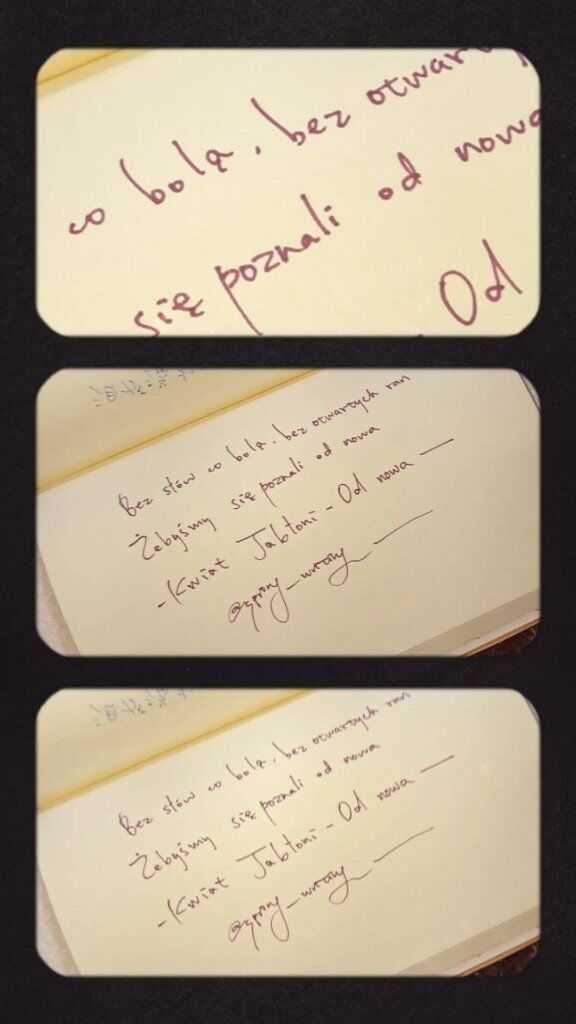 co bolą. bez otwarty
się poznali od nowa
Od
Bez słów co bolą. bez otwartych ran
Żebyśmy się poznali od nowa
-Kwiat Jabłoni - Od nowa —
Bez słów co bolą. bez otwartych ran
Żebyśmy się poznali od nowa
-Kwiat Jabłoni - Od nowa —